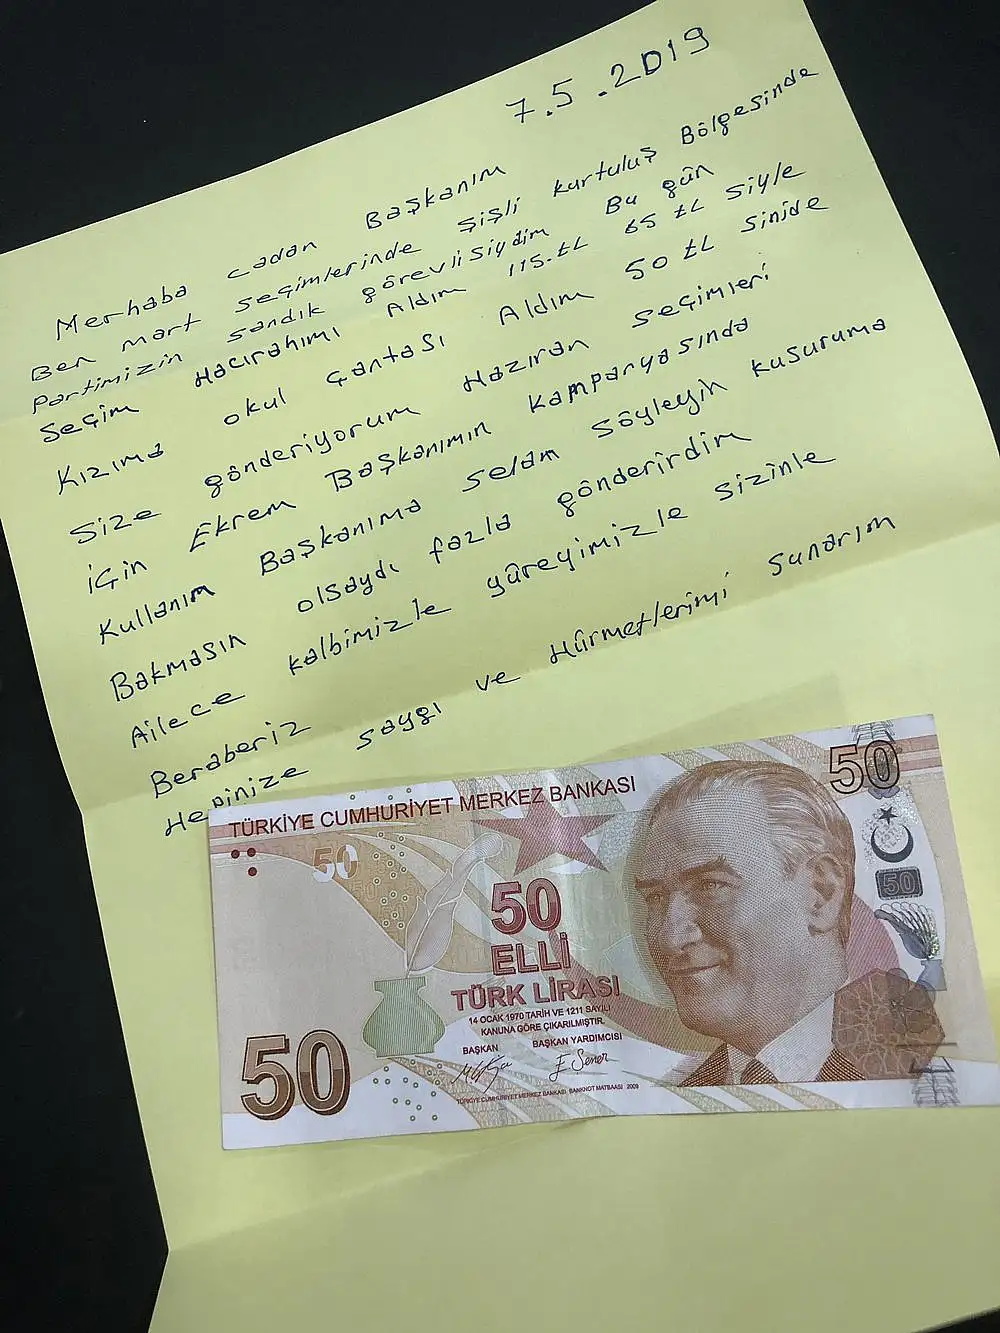 7.5.2019
Merhaba cadan Başkanım
Ben mart seçimlerinde şişli kurtuluş Bölgesinde
partimizin sandık görevlisiydim Bu gün
seçim Hacırahımı Aldım 115.tL 65 tL siyle
Kızıma okul çantası Aldım 50 tL sinide
size gönderiyorum Haziran seçimleri
için Ekrem Başkanımın kampanyasında
kullanım Başkanıma selam söyleyin kusuruma
Bakmasın olsaydı fazla gönderirdim
Ailece kalbimizle yüreyimizle sizinle
Beraberiz
Hepinize saygı ve Hürmetlerimi sunarım
TÜRKİYE CUMHURİYET MERKEZ BANKASI
50
50
50
50
ELLİ
TÜRK LİRASI
14 OCAK 1970 TARİH VE 1211 SAYILI
KANUNA GÖRE ÇIKARILMIŞTIR.
BAŞKAN BAŞKAN YARDIMCISI
50
TÜRKİYE CUMHURİYET MERKEZ BANKASI BANKNOT MATBAASI 2009